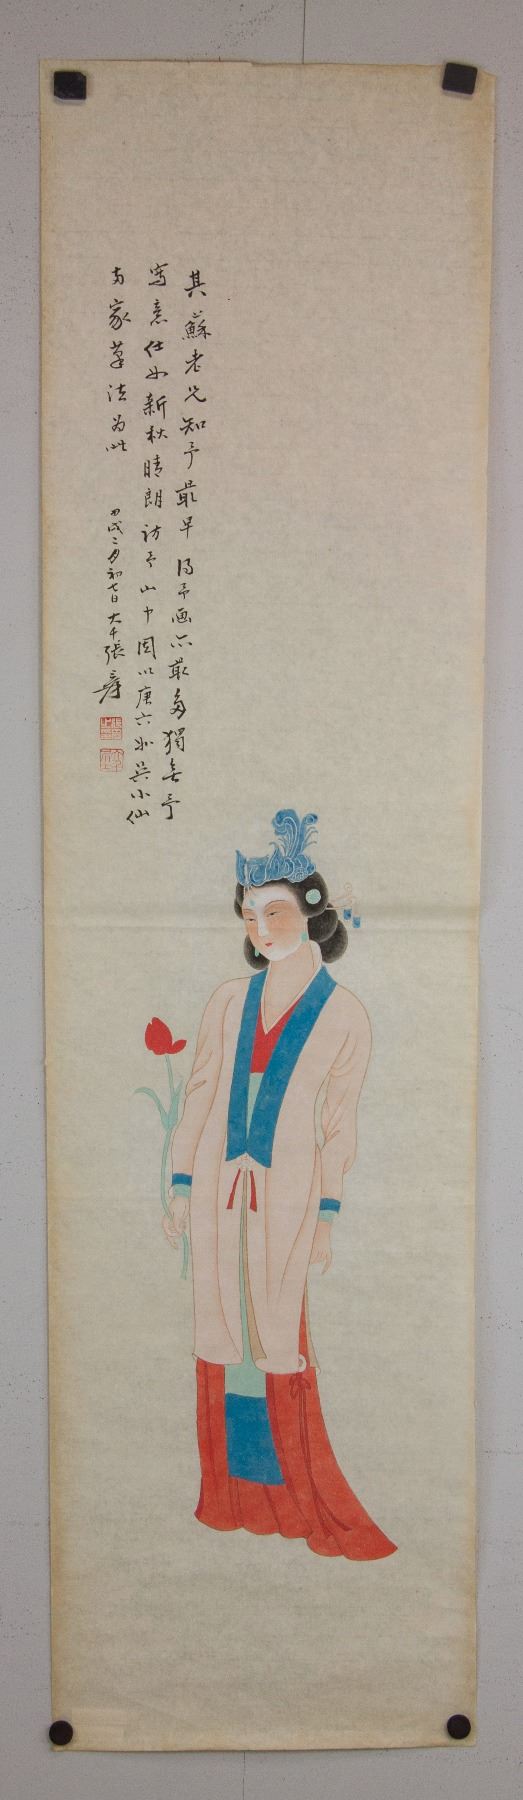 其蘇老兄知予最早得予画亦最多獨無予
寫意仕女新秋晴朗訪予山中因以唐六如吳小仙
兩家筆法為此
甲戌二月初七日大千張爰